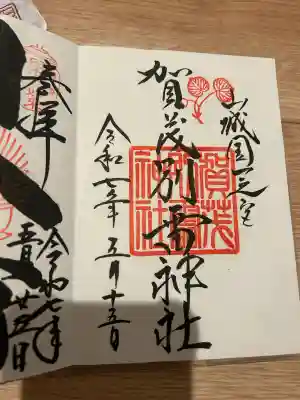 山城国一之宮
賀茂別雷神社
賀茂
別雷
神社
令和七年 五月十五日
奉拝
令和七年
廿五日